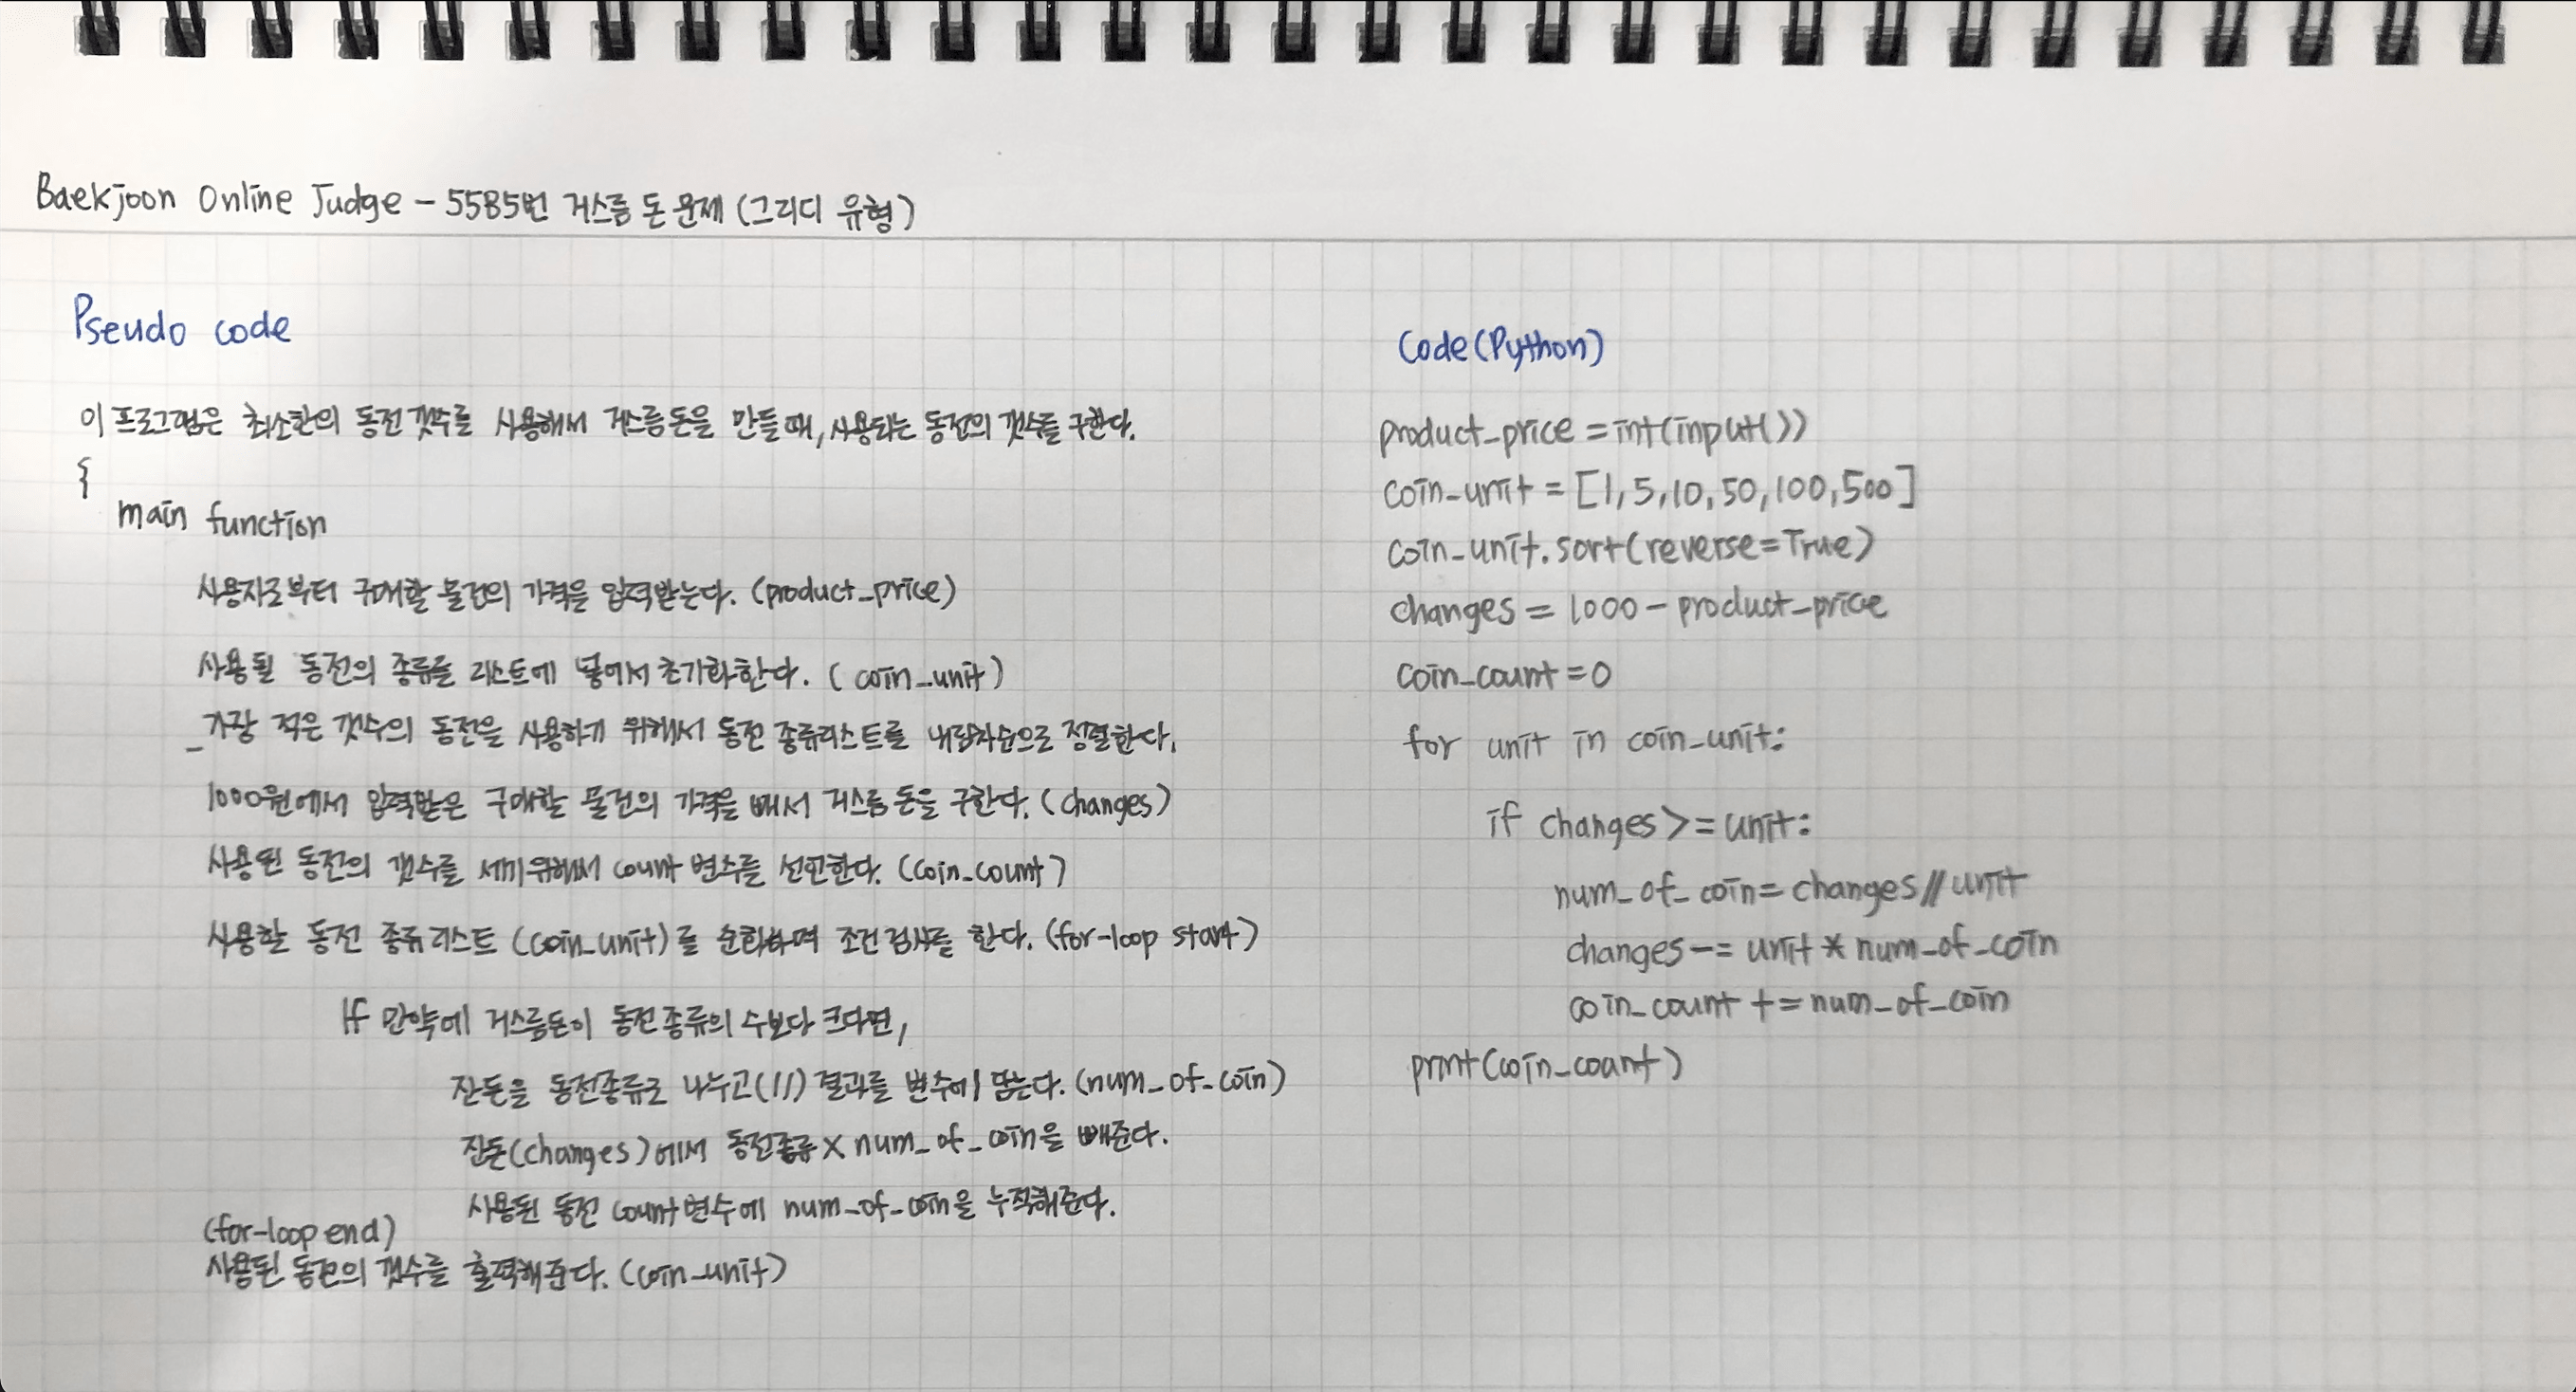 Baekjoon Online Judge - 5585번 거스름 돈 문제 (그리디 유형)
Pseudo code
이 프로그램은 최소한의 동전 갯수를 사용해서 거스름돈을 만들 때, 사용되는 동전의 갯수를 구한다.
{
main function
사용자로부터 구매할 물건의 가격을 입력받는다. (product_price)
사용될 동전의 종류를 리스트에 넣어서 초기화한다. (coin_unit)
_가장 적은 갯수의 동전을 사용하기 위해서 동전 종류리스트를 내림차순으로 정렬한다.
1000원에서 입력받은 구매할 물건의 가격을 빼서 거스름 돈을 구한다. (changes)
사용된 동전의 갯수를 세기위해서 count 변수를 선언한다. (coin_count)
사용할 동전 종류 리스트 (coin_unit)를 순회하며 조건검사를 한다. (for-loop start)
If 만약에 거스름돈이 동전 종류의 수보다 크다면,
잔돈을 동전종류로 나누고(//) 결과를 변수에 담는다. (num_of_coin)
잔돈(changes)에서 동전종류 × num_of_coin을 빼준다.
사용된 동전 count변수에 num_of_coin을 누적해준다.
(for-loop end)
사용된 동전의 갯수를 출력해준다. (coin_unit)
Code(Python)
product_price = int(input())
coin_unit = [1, 5, 10, 50, 100, 500]
coin_unit.sort(reverse=True)
changes = 1000 - product_price
coin_count = 0
for unit in coin_unit:
if changes >= unit:
num_of_coin = changes // unit
changes -= unit * num_of_coin
coin_count += num_of_coin
print(coin_count)